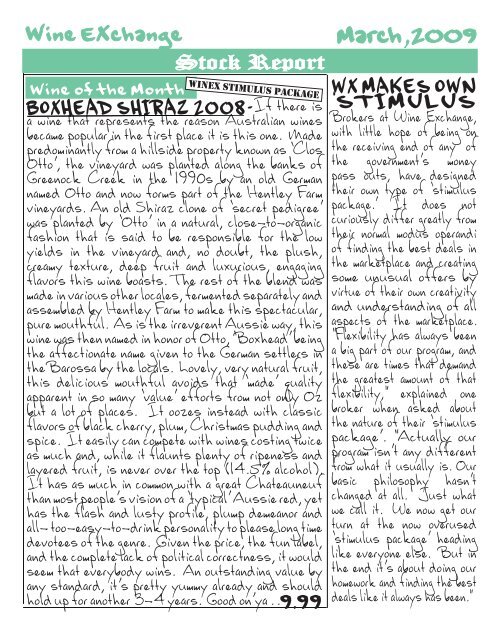 Wine EXchange March,2009
Stock Report
Wine of the Month WINEX STIMULUS PACKAGE
BOXHEAD SHIRAZ 2008-If there is
a wine that represents the reason Australian wines
became popular in the first place it is this one. Made
predominantly from a hillside property known as 'Clos
Otto', the vineyard was planted along the banks of
Greenock Creek in the 1990s by an old German
named Otto and now forms part of the Hentley Farm
vineyards. An old Shiraz clone of 'secret pedigree'
was planted by 'Otto' in a natural, close-to-organic
fashion that is said to be responsible for the low
yields in the vineyard and, no doubt, the plush,
creamy texture, deep fruit and luxurious, engaging
flavors this wine boasts. The rest of the blend was
made in various other locales, fermented separately and
assembled by Hentley Farm to make this spectacular,
pure mouthful. As is the irreverent Aussie way, this
wine was then named in honor of Otto, 'Boxhead' being
the affectionate name given to the German settlers in
the Barossa by the locals. Lovely, very natural fruit,
this delicious mouthful avoids that 'made' quality
apparent in so many 'value' efforts from not only Oz
but a lot of places. It oozes instead with classic
flavors of black cherry, plum, Christmas pudding and
spice. It easily can compete with wines costing twice
as much and, while it flaunts plenty of ripeness and
layered fruit, is never over the top (14.5% alcohol).
It has as much in common with a great Chateauneuf
than most people's vision of a 'typical' Aussie red, yet
has the flash and lusty profile, plump demeanor and
all-too-easy-to-drink personality to please long time
devotees of the genre. Given the price, the fun label,
and the complete lack of political correctness, it would
seem that everybody wins. An outstanding value by
any standard, it's pretty yummy already and should
hold up for another 3-4 years. Good on 'ya ..9.99
WX MAKES OWN
STIMULUS
Brokers at Wine Exchange,
with little hope of being on
the receiving end of any of
the government's money
pass outs, have designed
their own type of 'stimulus
package.' It does not
curiously differ greatly from
their normal modus operandi
of finding the best deals in
the marketplace and creating
some unusual offers by
virtue of their own creativity
and understanding of all
aspects of the marketplace.
"Flexibility has always been
a big part of our program, and
these are times that demand
the greatest amount of that
flexibility," explained one
broker when asked about
the nature of their 'stimulus
package'. "Actually our
program isn't any different
from what it usually is. Our
basic philosophy hasn't
changed at all. Just what
we call it. We now get our
turn at the now overused
'stimulus package' heading
like everyone else. But in
the end it's about doing our
homework and finding the best
deals like it always has been."